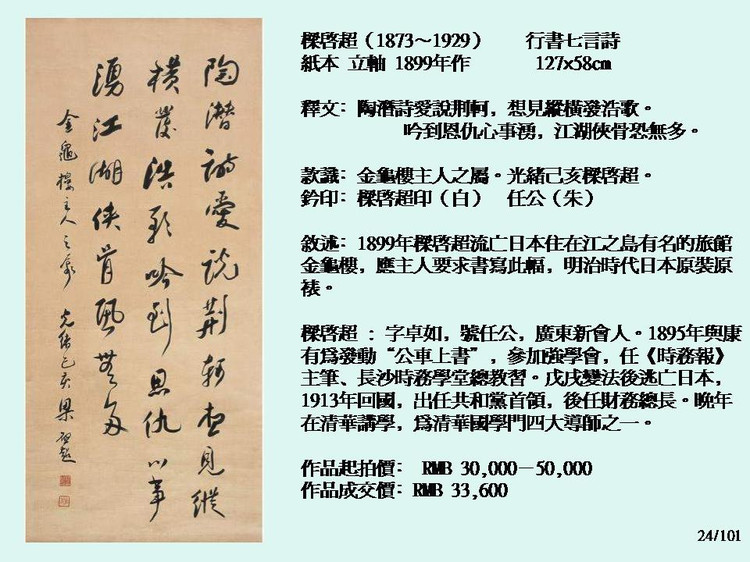 陶潛詩愛說荆軻想見縱
橫發浩歌吟到恩仇心事
湧江湖俠骨恐無多
金龜樓主人之屬 光緒己亥梁啟超
樑啓超（1873～1929） 行書七言詩
紙本 立軸 1899年作 127x58cm
釋文: 陶潛詩愛說荆軻，想見縱橫發浩歌。
吟到恩仇心事湧，江湖俠骨恐無多。
款識: 金龜樓主人之屬。光緒己亥樑啓超。
鈐印: 樑啓超印（白） 任公（朱）
敘述: 1899年樑啓超流亡日本住在江之島有名的旅館
金龜樓，應主人要求書寫此幅，明治時代日本原裝原
裱。
樑啓超 : 字卓如，號任公，廣東新會人。1895年與康
有爲發動“公車上書”，參加強學會，任《時務報》
主筆、長沙時務學堂總教習。戊戌變法後逃亡日本，
1913年回國，出任共和黨首領，後任財務總長。晚年
在清華講學，爲清華國學門四大導師之一。
作品起拍價: RMB 30,000－50,000
作品成交價: RMB 33,600
24/101